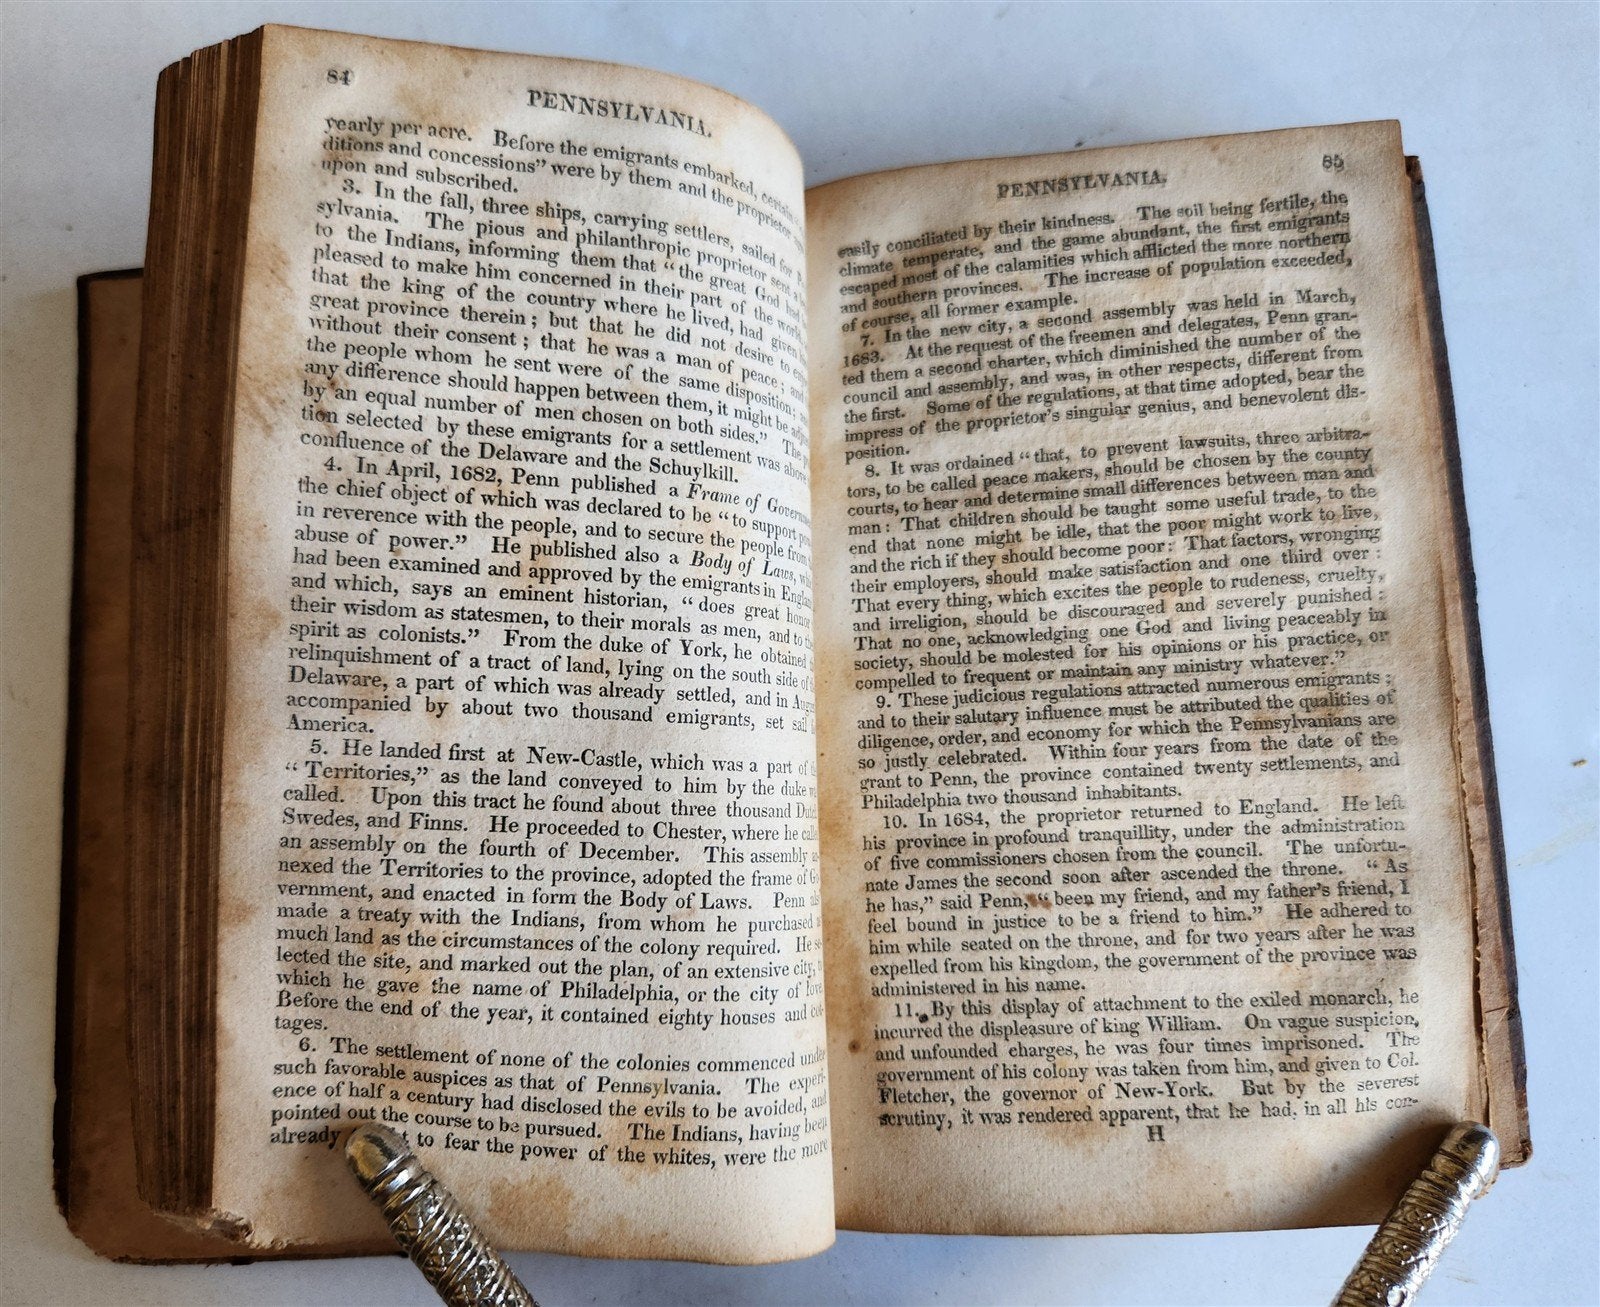 84
PENNSYLVANIA.
yearly per acre. Before the emigrants embarked, certain
ditions and concessions" were by them and the proprietor
upon and subscribed.
3. In the fall, three ships, carrying settlers, sailed for
sylvania. The pious and philanthropic proprietor sent a
to the Indians, informing them that "the great God had
pleased to make him concerned in their part of the world,
that the king of the country where he lived, had given
great province therein; but that he did not desire to
without their consent; that he was a man of peace; and
the people whom he sent were of the same disposition;
any difference should happen between them, it might be
by an equal number of men chosen on both sides." The
tion selected by these emigrants for a settlement was above
confluence of the Delaware and the Schuylkill.
4. In April, 1682, Penn published a Frame of
the chief object of which was declared to be "to support
in reverence with the people, and to secure the people from
abuse of power." He published also a Body of Laws,
had been examined and approved by the emigrants in
and which, says an eminent historian, "does great honor
their wisdom as statesmen, to their morals as men, and to
spirit as colonists." From the duke of York, he obtained
relinquishment of a tract of land, lying on the south side of
Delaware, a part of which was already settled, and in
accompanied by about two thousand emigrants, set sail
America.
5. He landed first at New-Castle, which was a part of
"Territories," as the land conveyed to him by the duke
called. Upon this tract he found about three thousand
Swedes, and Finns. He proceeded to Chester, where he
an assembly on the fourth of December. This assembly
nexed the Territories to the province, adopted the frame of
vernment, and enacted in form the Body of Laws. Penn
made a treaty with the Indians, from whom he purchased
much land as the circumstances of the colony required. He
lected the site, and marked out the plan, of an extensive city,
which he gave the name of Philadelphia, or the city of love.
Before the end of the year, it contained eighty houses and cot-
tages.
6. The settlement of none of the colonies commenced under
such favorable auspices as that of Pennsylvania. The experi-
ence of half a century had disclosed the evils to be avoided, and
pointed out the course to be pursued. The Indians, having been
already to fear the power of the whites, were the more
85
PENNSYLVANIA.
easily conciliated by their kindness. The soil being fertile, the
climate temperate, and the game abundant, the first emigrants
escaped most of the calamities which afflicted the more northern
and southern provinces. The increase of population exceeded,
of course, all former example.
7. In the new city, a second assembly was held in March,
1683. At the request of the freemen and delegates, Penn gran-
ted them a second charter, which diminished the number of the
council and assembly, and was, in other respects, different from
the first. Some of the regulations, at that time adopted, bear the
impress of the proprietor's singular genius, and benevolent dis-
position.
8. It was ordained "that, to prevent lawsuits, three arbitra-
tors, to be called peace makers, should be chosen by the county
courts, to hear and determine small differences between man and
man: That children should be taught some useful trade, to the
end that none might be idle, that the poor might work to live,
and the rich if they should become poor: That factors, wronging
their employers, should make satisfaction and one third over:
That every thing, which excites the people to rudeness, cruelty,
and irreligion, should be discouraged and severely punished:
That no one, acknowledging one God and living peaceably in
society, should be molested for his opinions or his practice, or
compelled to frequent or maintain any ministry whatever."
9. These judicious regulations attracted numerous emigrants;
and to their salutary influence must be attributed the qualities of
diligence, order, and economy for which the Pennsylvanians are
so justly celebrated. Within four years from the date of the
grant to Penn, the province contained twenty settlements, and
Philadelphia two thousand inhabitants.
10. In 1684, the proprietor returned to England. He left
his province in profound tranquillity, under the administration
of five commissioners chosen from the council. The unfortu-
nate James the second soon after ascended the throne. "As
he has," said Penn, "been my friend, and my father's friend, I
feel bound in justice to be a friend to him." He adhered to
him while seated on the throne, and for two years after he was
expelled from his kingdom, the government of the province was
administered in his name.
11. By this display of attachment to the exiled monarch, he
incurred the displeasure of king William. On vague suspicion,
and unfounded charges, he was four times imprisoned. The
government of his colony was taken from him, and given to Col.
Fletcher, the governor of New-York. But by the severest
scrutiny, it was rendered apparent, that he had, in all his con-
H